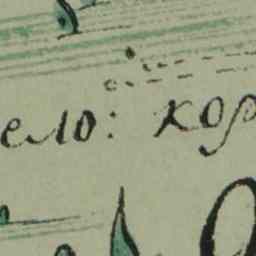 ело: кор